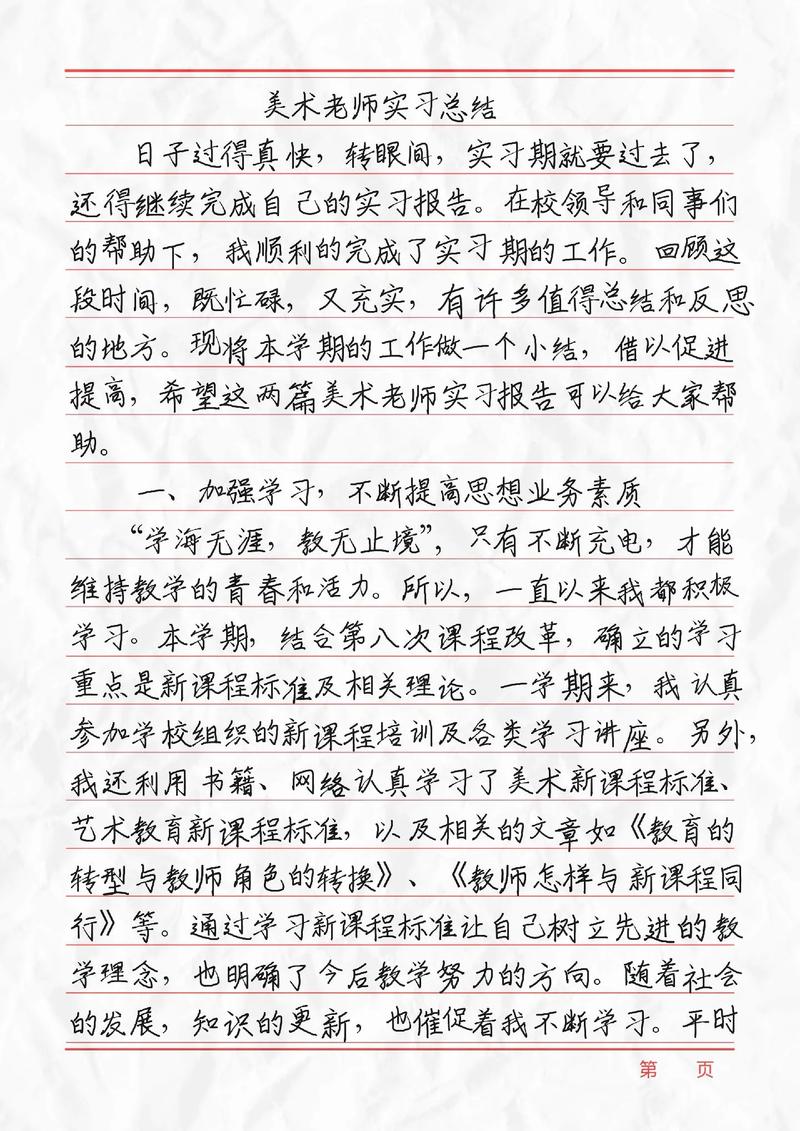 美术老师实习总结
日子过得真快，转眼间，实习期就要过去了，
还得继续完成自己的实习报告。在校领导和同事们
的帮助下，我顺利的完成了实习期的工作。回顾这
段时间，既忙碌，又充实，有许多值得总结和反思
的地方。现将本学期的工作做一个小结，借以促进
提高，希望这两篇美术老师实习报告可以给大家帮
助。
一、加强学习，不断提高思想业务素质
“学海无涯，教无止境”，只有不断充电，才能
维持教学的青春和活力。所以，一直以来我都积极
学习。本学期，结合第八次课程改革，确立的学习
重点是新课程标准及相关理论。一学期来，我认真
参加学校组织的新课程培训及各类学习讲座。另外，
我还利用书籍、网络认真学习了美术新课程标准、
艺术教育新课程标准，以及相关的文章如《教育的
转型与教师角色的转换》、《教师怎样与新课程同
行》等。通过学习新课程标准让自己树立先进的教
学理念，也明确了今后教学努力的方向。随着社会
的发展，知识的更新，也催促着我不断学习。平时
第 页